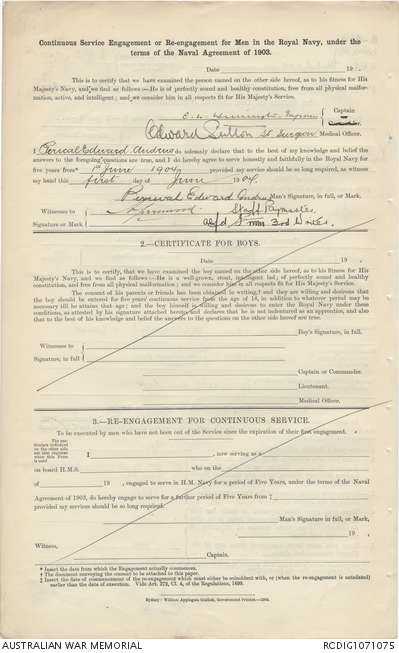 Continuous Service Engagement or Re-engagement for Men in the Royal Navy, under the
terms of the Naval Agreement of 1903.
Date 19 .
This is to certify that we have examined the person named on the other side hereof, as to his fitness for His
Majesty's Navy, and we find as follows:—He is of perfectly sound and healthy constitution, free from all physical malfor-
mation, active, and intelligent; and we consider him in all respects fit for His Majesty's Service.
Captain
Edward Sutton St Surgeon Medical Officer.
I Percival Edward Andrew do solemnly declare that to the best of my knowledge and belief the
answers to the foregoing questions are true, and I do hereby agree to serve honestly and faithfully in the Royal Navy for
five years from* 1st June 1904, provided my service should be so long required, as witness
my hand this first day of June 1904.
Percival Edward Andrew Man's Signature in full, or Mark.
Witnesses to
Staff Paymaster
Signature or Mark
2.—CERTIFICATE FOR BOYS.
Date 19 .
This is to certify, that we have examined the boy named on the other side hereof, as to his fitness for His
Majesty's Navy, and we find as follows:—He is a well-grown, stout, intelligent lad; of perfectly sound and healthy
constitution, and free from all physical malformation; and we consider him in all respects fit for His Majesty's Service.
The consent of his parents or friends has been obtained in writing,† and they are willing and desirous that
the boy should be entered for five years' continuous service from the age of 18, in addition to whatever period may be
necessary till he attains that age; and the boy himself is willing and desirous to enter the Royal Navy under these
conditions, as attested by his signature attached hereto, and declares that he is not indentured as an apprentice, and also
that to the best of his knowledge and belief the answers to the questions on the other side hereof are true.
Boy's Signature, in full.
Witnesses to
Signature, in full
Captain or Commander.
Lieutenant.
Medical Officer.
3.—RE-ENGAGEMENT FOR CONTINUOUS SERVICE.
To be executed by men who have not been out of the Service since the expiration of their first engagement.
I , now serving as a
on board H.M.S. who on the
of 19 , engaged to serve in H.M. Navy for a period of Five Years, under the terms of the Naval
Agreement of 1903, do hereby engage to serve for a further period of Five Years from ‡
provided my services should be so long required.
Man's Signature in full, or Mark,
19 .
Witness,
Captain.
* Insert the date from which the Engagement actually commences.
† The document conveying the consent to be attached to this paper.
‡ Insert the date of commencement of the re-engagement which must either be coincident with, or (when the re-engagement is antedated)
earlier than the date of execution. Vide Art. 379, Cl. 4, of the Regulations, 1899.
Sydney: William Applegate Gullick, Government Printer.—1904.
AUSTRALIAN WAR MEMORIAL
RCDIG1071075